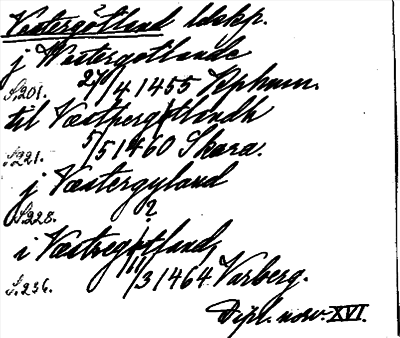 Vestergötland ldskp.
j Westergotlande
S.201. 27/4 1455 Kepham.
til Væsthergötlandh
S.221. 5/5 1460 Skara.
j Væstergylland
S.228. 2
i Væstregötland
S.236. 11/3 1464 Varberg.
Dipl. norv. XVI.